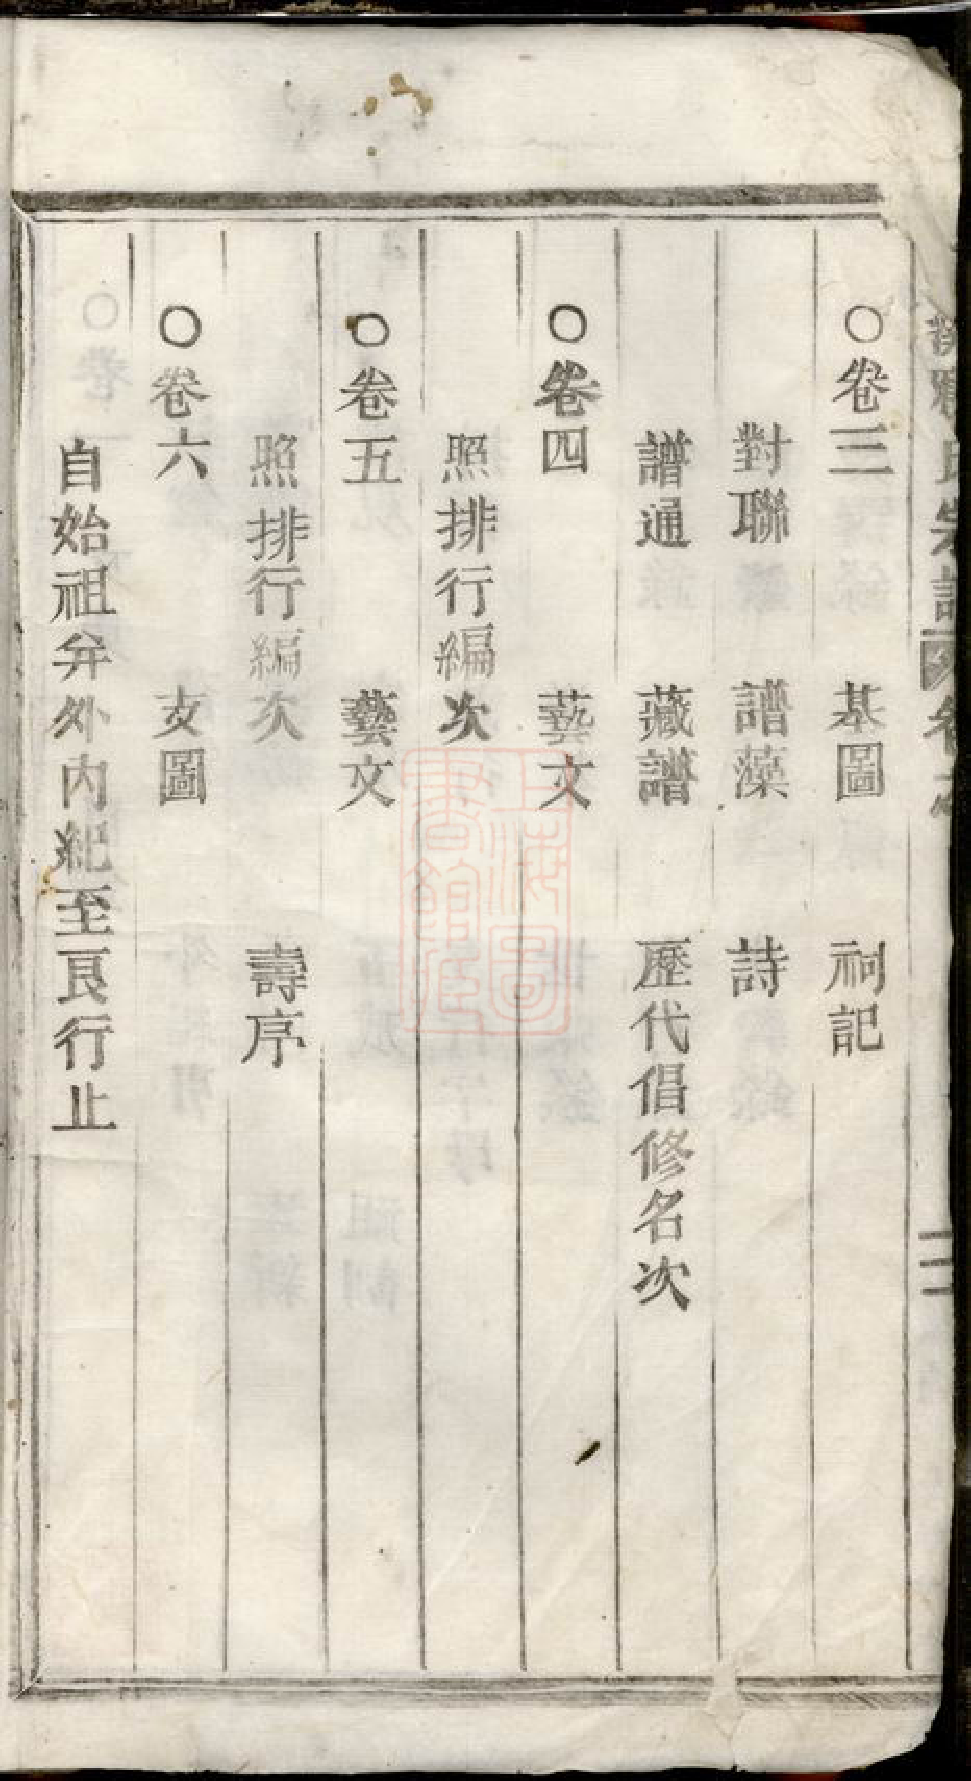 ○卷三 基圖 祠記
對聯 譜藻 詩
譜通 藏譜 歷代倡修名次
○卷四 藝文
照排行編次
○卷五 藝文
照排行編次 壽序
○卷六 支圖
自始祖弁外內紀至良行止
氏宗譜
二
上海圖書館藏